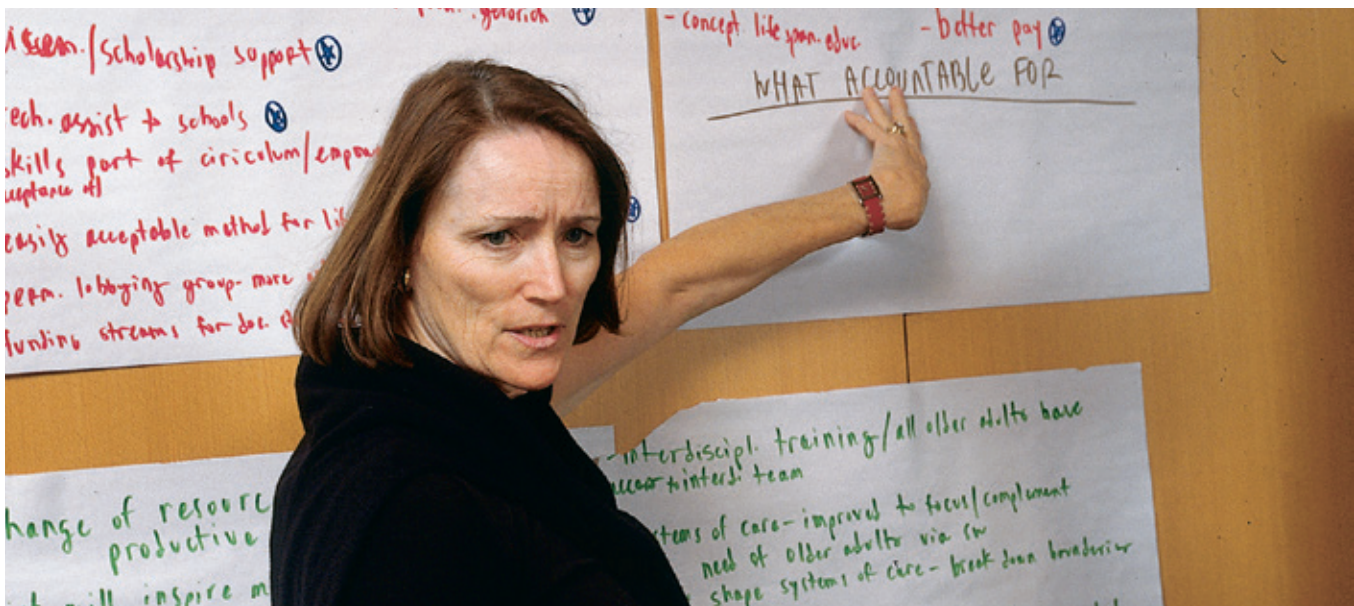 /scholarship support
tech. assist to schools
skills part of ciricolum/
easily acceptable method for
lobbying group - more
funding streams for doc.
- concept. life span. educ.
- better pay
WHAT ACCOUNTABLE FOR
hange of resourc
productive
will inspire m
-interdiscipl. training/all older adults have
access to interd. team
stems of care - improved to focus/complement
need of older adults via SW
shape systems of care - break down boundaries